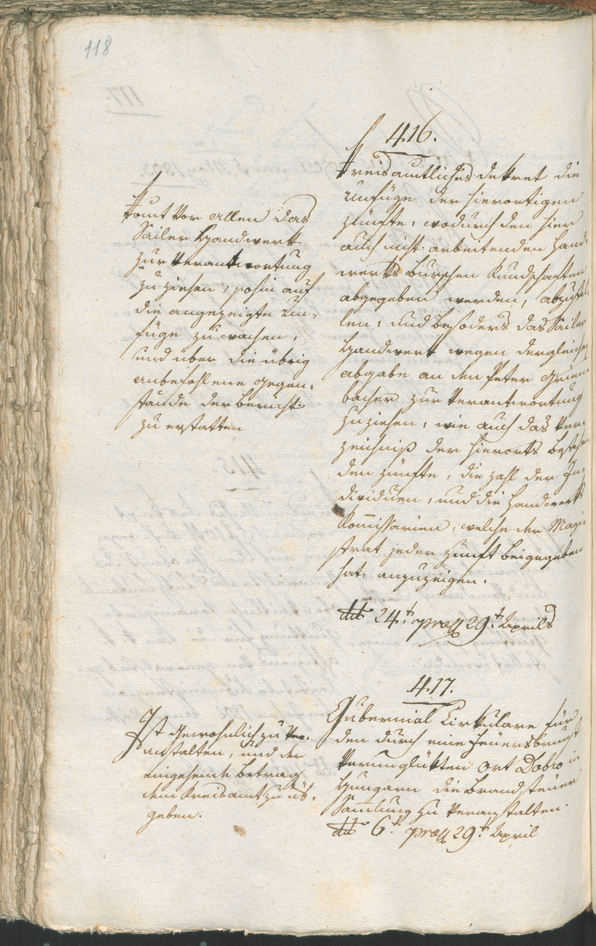 118
416.
Kreisamtliches dekret die
Unfüge der hierortigen
Zünfte, wodurch den hier
auch nicht arbeitenden Hand-
werks Burschen Kundschaften
abgegeben werden, abzustel
len, und besonders das Sailer
Handwerk wegen dergleichen
abgabe an den Peter Grün
bacher zur Verantwortung
zu ziehen, wie auch das Ver
zeichniß der hierorts bestehen
den Zünfte, die Zahl der In
dividuen, und die Handwerks
Kommissarien, welche der Magi
strat jeder Zunft beigegeben
hat, anzuzeigen.
dto 24t praes 29t Aprils
vor allem das
Sailer Handwerk
zur Verantwortung
zu ziehen, sohin auf
die angezeigte Un-
füge zu wachen,
und über die übrig
anbefohlene Gegen-
stände der bericht
zu erstatten
417.
Gubernial Cirkulare für
den durch eine Feuersbrunst
verunglückten Ort Dobro in
Hungarn die Brandsteuer
Sammlung zu veranstalten.
dto 6t praes 29t April
Ist gewöhnlich zu ver-
anstalten, und der
eingehende betrag
dem Kreisamt zu üb-
geben.